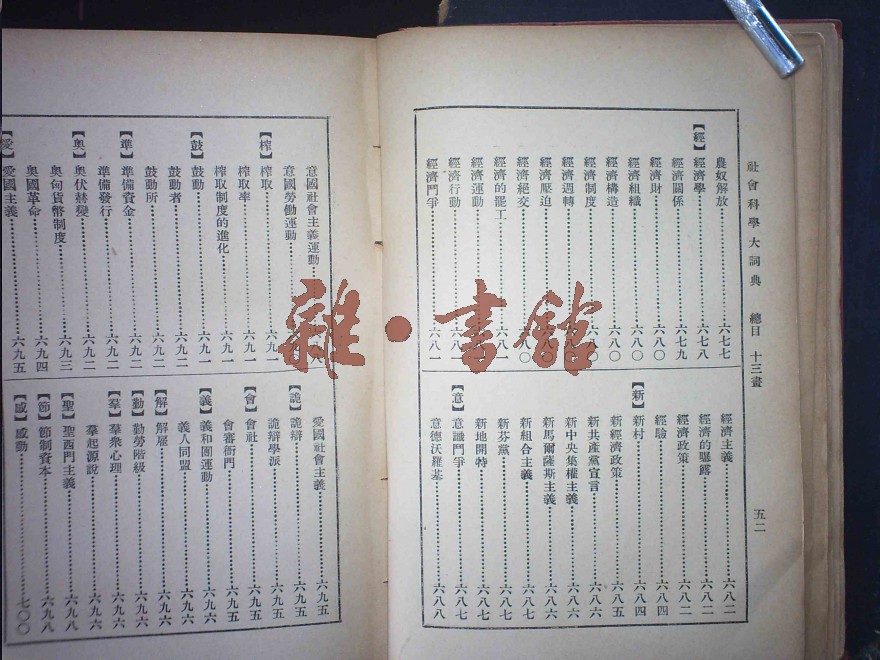 社會科學大詞典 總目 十三畫 五二
農奴解放……六七七
【經】經濟學……六七八
經濟關係……六七九
經濟財……六八〇
經濟組織……六八〇
經濟構造……六八〇
經濟制度……六八〇
經濟週轉
經濟壓迫
經濟絕交……六八〇
經濟的罷工……六八一
經濟運動……六八一
經濟行動……六八一
經濟鬥爭……六八一
經濟主義……六八二
經濟的曝露……六八二
經濟政策……六八二
經驗……六八四
【新】新村……六八四
新經濟政策……六八五
新共產黨宣言……六八六
新中央集權主義……六八六
新馬爾薩斯主義……六八六
新組合主義……六八七
新芬黨……六八七
新地開特……六八七
【意】意識鬥爭……六八七
意德沃羅基……六八八
意國社會主義運動
意國勞働運動
【榨】榨取……六九一
榨取率……六九一
榨取制度的進化……六九一
【鼓】鼓動……六九一
鼓動者……六九二
鼓動所……六九二
【準】準備資金……六九二
準備發行……六九二
【奧】奧伏赫變……六九二
奧匈貨幣制度……六九三
奧國革命……六九四
【愛】愛國主義……六九五
愛國社會主義……六九五
【詭】詭辯……六九五
詭辯學派……六九五
【會】會社……六九五
會審衙門……六九五
【義】義和團運動……六九六
義人同盟……六九六
【解】解雇……六九六
【勤】勤勞階級……六九六
【羣】羣衆心理……六九六
羣起源說……六九六
【聖】聖西門主義……六九八
【節】節制資本……六九九
【感】感動……七〇〇
雜·書館